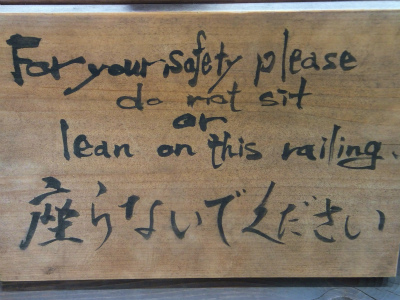 For your safety please
do not sit
or
lean on this railing.
座らないでください